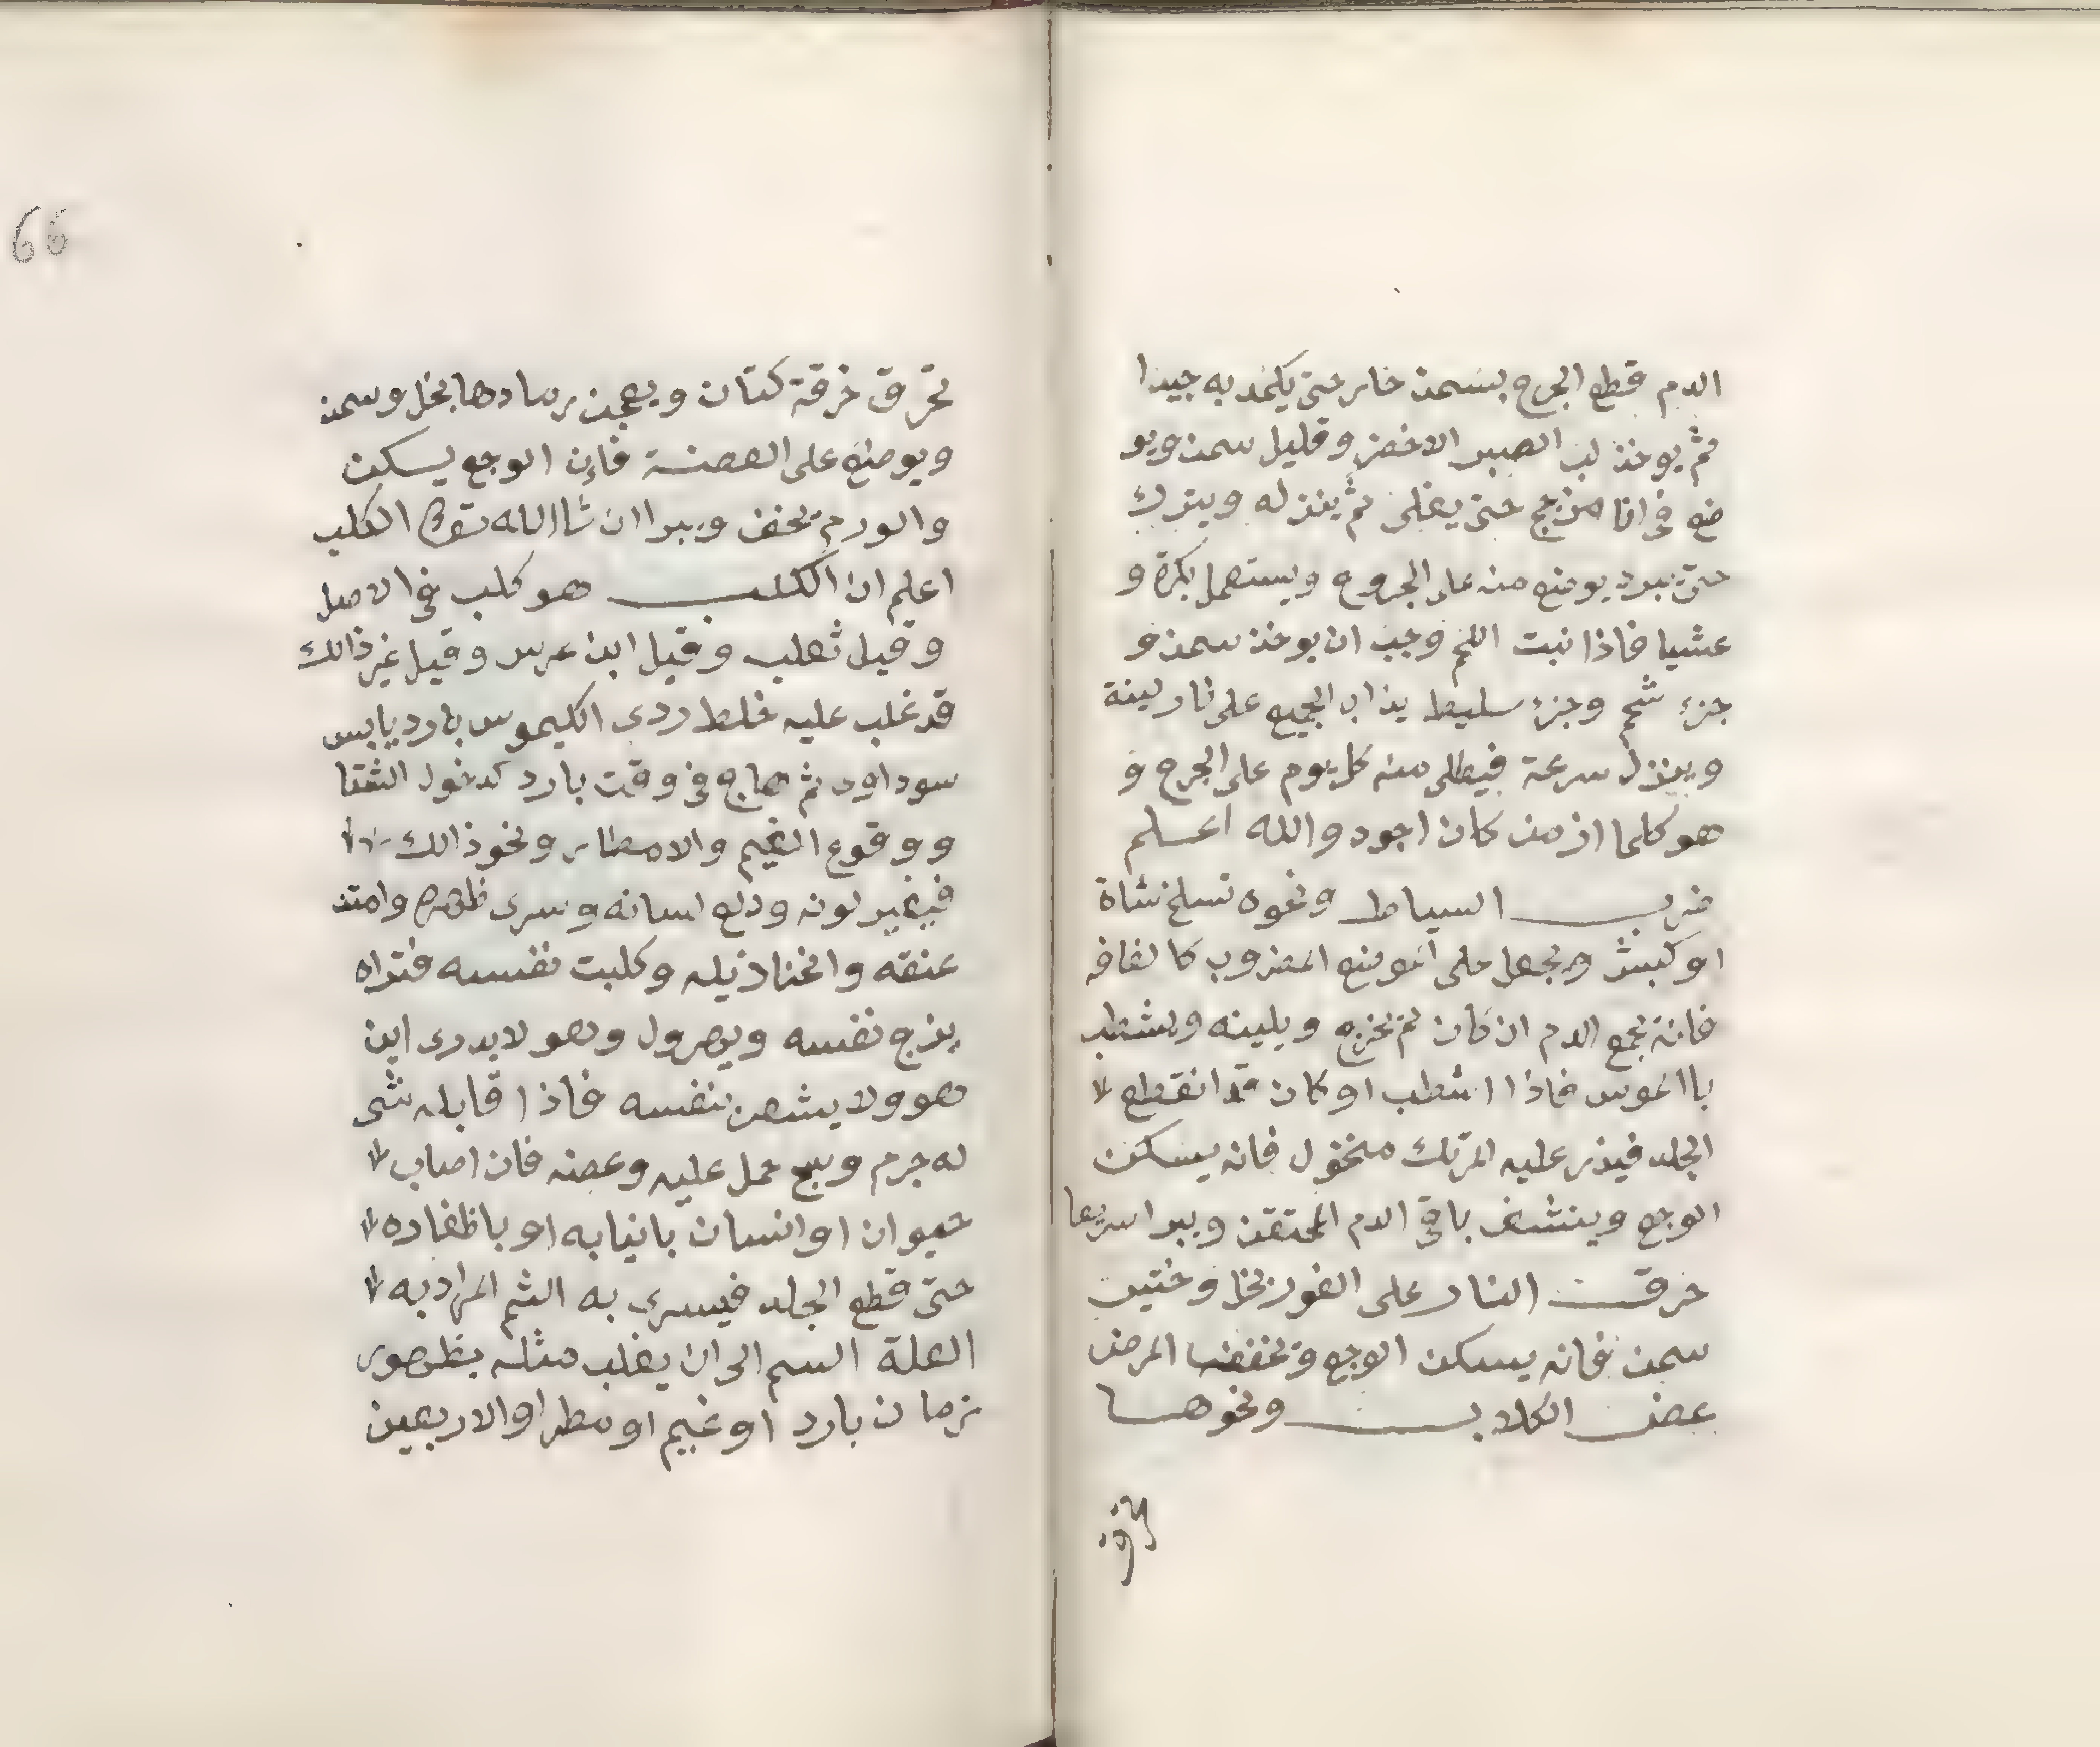 الدم قطع الجرح بسمن حار حتى يكمد به جيدا
ثم يوخذ لب الصبر الاخضر وقليل سمن ويو
ضع في انا مزجج حتى يغلى ثم ينزله ويترك
حتى يبرد يوضع منه على الجروح ويستعمل بكرة و
عشيا فاذا نبت اللحم وجب ان يوخذ سمن و
جزء شحم وجزء سليط يذاب الجميع على نار لينة
وينزل سرعة فيطلى منه كل يوم على الجرح و
هو كلما ازمن كان اجود والله اعلم
ضرب السياط ونحوه تسلخ شاة
او كبش ويجعل على الموضع المضروب كالفافه
فانه يجمع الدم ان كان لم يخرج ويلينه ويشطب
باالموس فاذا اشطب او كان قد انقطع
الجلد فيذر عليه المرتك منخول فانه يسكن
الوجع وينشف باقي الدم المحتقن ويبرا سريعا
حرقت النار على الفور بخل وختير
سمن فانه يسكن الوجع وتخففها المرض
عض الكلاب ونحوها
تحرق
66
تحرق خرقة كتان ويعجن رمادها بخل وسمن
ويوضع على العضة فإن الوجع يسكن
والورم يخف ويبرا ان شاالله الكلب
اعلم ان الكلب هو كلب في الاصل
وقيل ثعلب وقيل ابن عرس وقيل غير ذالك
قد غلب عليه خلط ردى الكيموس بارد يابس
سوداوى ثم هاج في وقت بارد كدخول الشتا
ووقوع الغيم والامطار ونحو ذالك
فيغير لونه ودلع لسانه وسرى ظهره وامتد
عنقه وانحنا ذيله وكلبت نفسه فتراه
يزج نفسه ويهرول وهو لا يدرى اين
هو ولا يشعر بنفسه فاذا قابله شى
له جرم وسبح حمل عليه وعضه فان اصاب
حيوان او انسان بانيابه او باظفاره
حتى قطع الجلد فيسرى به الثم المراد به
العلة السم الى ان يغلب مثله بظهور
زمان بارد او غيم او مطر او الاربعين